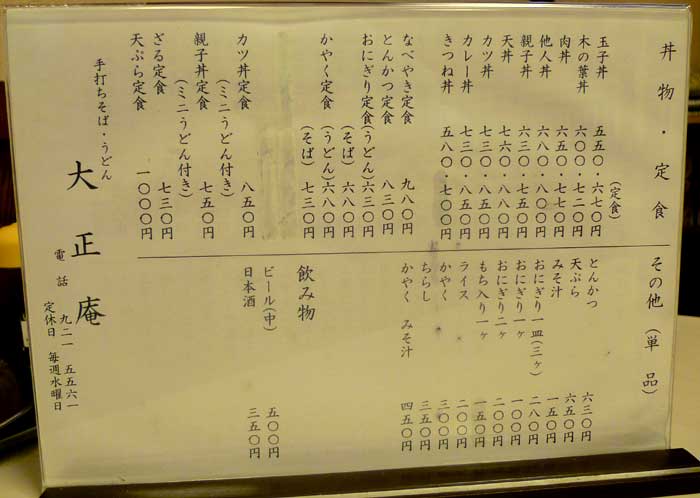 丼物・定食
(定食)
玉子丼 五五〇・六七〇円
木の葉丼 六〇〇・七二〇円
肉丼 六五〇・七七〇円
他人丼 六八〇・八〇〇円
親子丼 六三〇・七五〇円
天丼 七六〇・八八〇円
カツ丼 七三〇・八五〇円
カレー丼 七三〇・八五〇円
きつね丼 五八〇・七〇〇円
なべやき定食 九八〇円
とんかつ定食 八三〇円
おにぎり定食(うどん) 六三〇円
(そば) 六八〇円
かやく定食 (うどん) 六八〇円
(そば) 七三〇円
カツ丼定食 八五〇円
(ミニうどん付き)
親子丼定食 七五〇円
(ミニうどん付き)
ざる定食 七三〇円
天ぷら定食 一〇〇〇円
その他(単品)
とんかつ 六三〇円
天ぷら 六五〇円
みそ汁 一五〇円
おにぎり一皿(三ヶ) 二八〇円
おにぎり一ヶ 一〇〇円
おにぎり二ヶ 二〇〇円
もち入り一ヶ 一五〇円
ライス 二〇〇円
かやく 三〇〇円
ちらし 三五〇円
かやく みそ汁 四五〇円
飲み物
ビール(中) 五〇〇円
日本酒 三五〇円
手打ちそば・うどん
大正庵
電話 九二一 五五六一
定休日 毎週水曜日